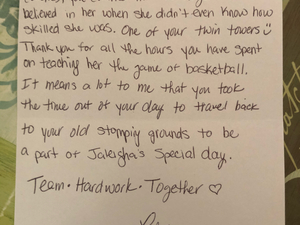 believed in her when she didn't even know how
skilled she was. One of your twin towers
Thank you for all the hours you have spent
on teaching her the game of basketball.
It means a lot to me that you took
the time out of your day to travel back
to your old stompig grounds to be
a part of Jaleigha's Special day.
Team • Hardwork • Together ♡